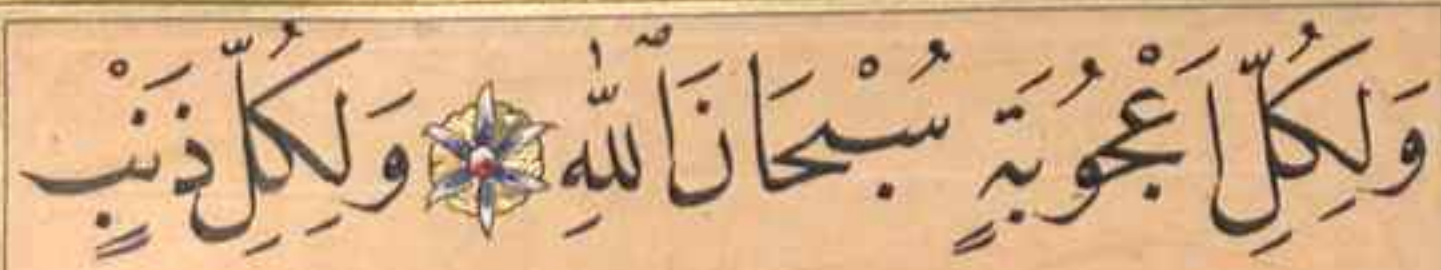 وَلِكُلِّ اَعْجُوبَةٍ سُبْحَانَ ٱللّٰهِ وَلِكُلِّ ذَنْبٍ